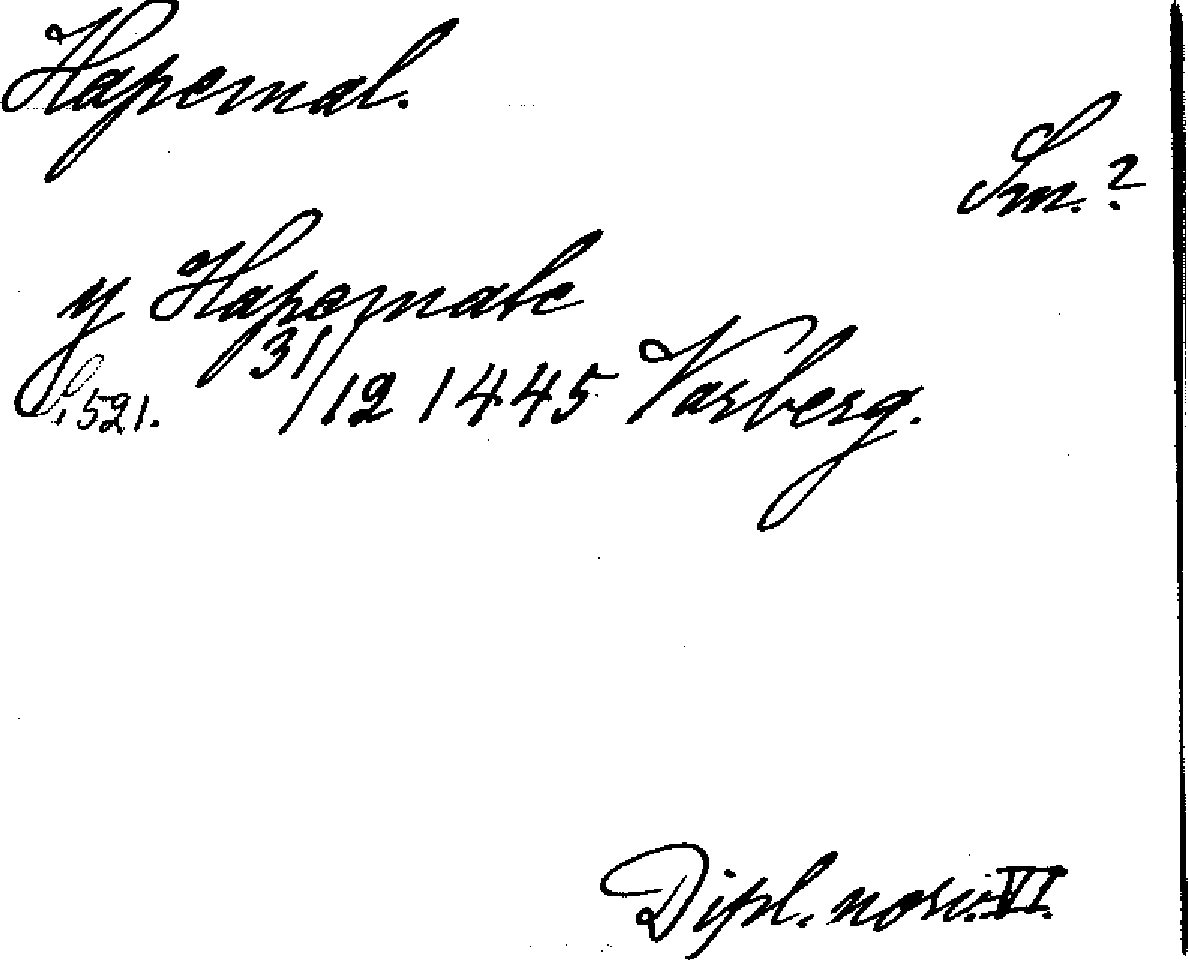 Hapemal.
Sm.?
y Hapemale
S. 521. 31/12 1445 Varberg.
Dipl. norv. VI.